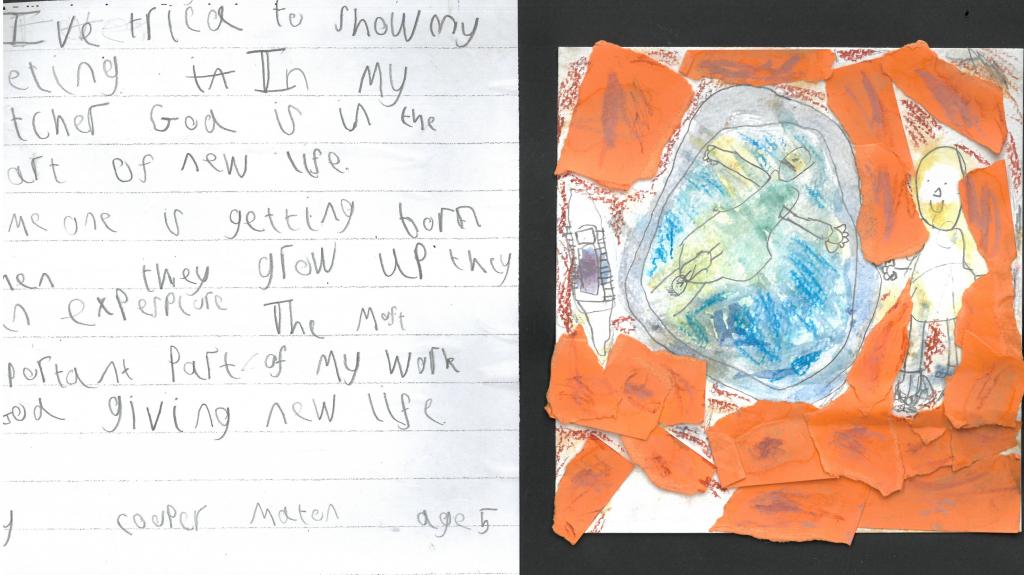 I've tried to show my
eling in In my
tcher God is in the
art of new life.
me one is getting born
hen they grow up they
n experpcure The Most
portant Part of my work
God giving new life
y cooper Maton age 5